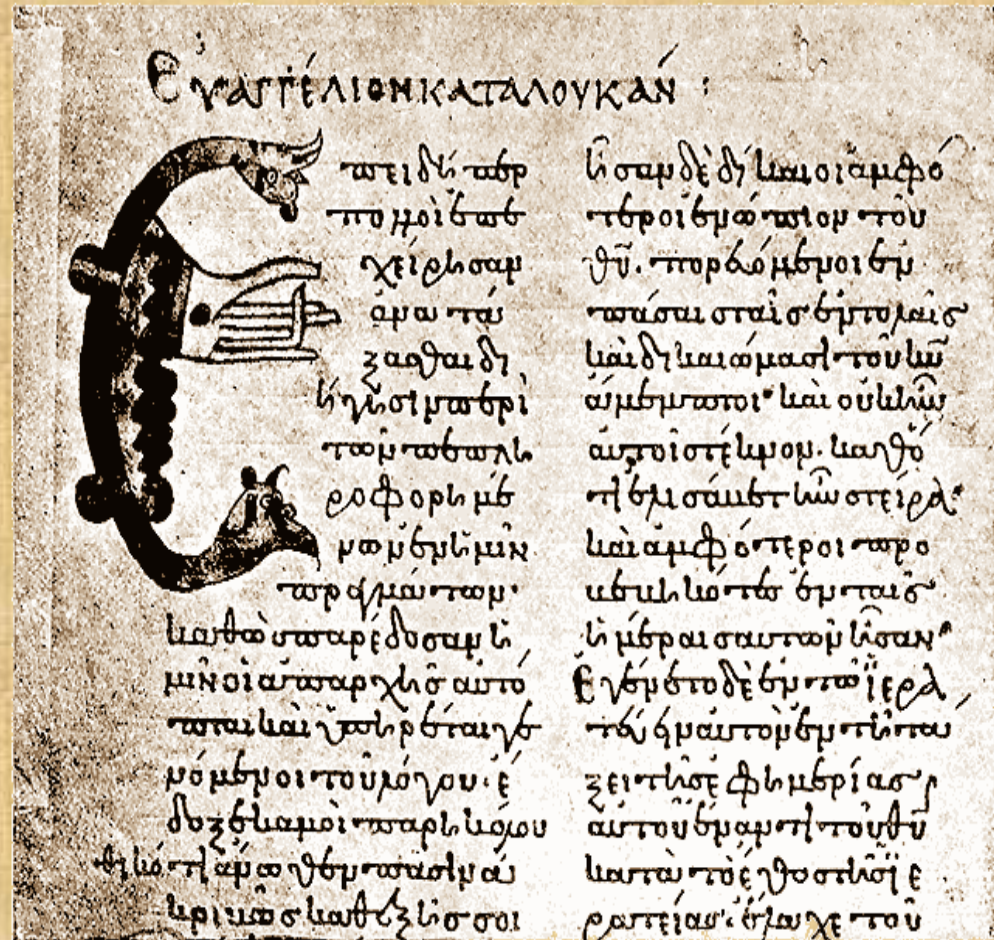 Εὐαγγέλιον κατὰ Λουκάν :
Ἐπειδή περ
πολλοὶ ἐπε
χείρησαν
ἀνα τά
ξασθαι δι
ήγησιν περὶ
τῶν πεπλη
ροφορημέ
νων ἐν ἡμῖν
πραγμάτων·
καθὼς παρέδοσαν ἡ
μῖν οἱ ἀπαρχῆς αὐτό
πται καὶ ὑπηρέται γε
νόμενοι τοῦ λόγου· ἔ
δοξε κἀμοὶ παρηκολου
θηκότι ἄνωθεν πᾶσιν ἀ
κριβῶς καθεξῆς σοι
ἦσαν δὲ δίκαιοι ἀμφό
τεροι ἐνώπιον τοῦ
θ̅υ̅. πορευόμενοι ἐν
πάσαις ταῖς ἐντολαῖς
καὶ δικαιώμασι τοῦ κ̅υ̅
ἄμεμπτοι· καὶ οὐκ ἦν
αὐτοῖς τέκνον. καθό
τι ἡ ἐλισάβετ ἦν στεῖρα·
καὶ ἀμφότεροι προ
βεβηκότες ἐν ταῖς
ἡμέραις αὐτῶν ἦσαν·
Ἐγένετο δὲ ἐν τῷ ἱερα
τεύειν αὐτὸν ἐν τῇ τά
ξει τῆς ἐφημερίας
αὐτοῦ ἔναντι τοῦ θ̅υ̅
κατὰ τὸ ἔθος τῆς ἱε
ρατείας· ἔλαχε τοῦ